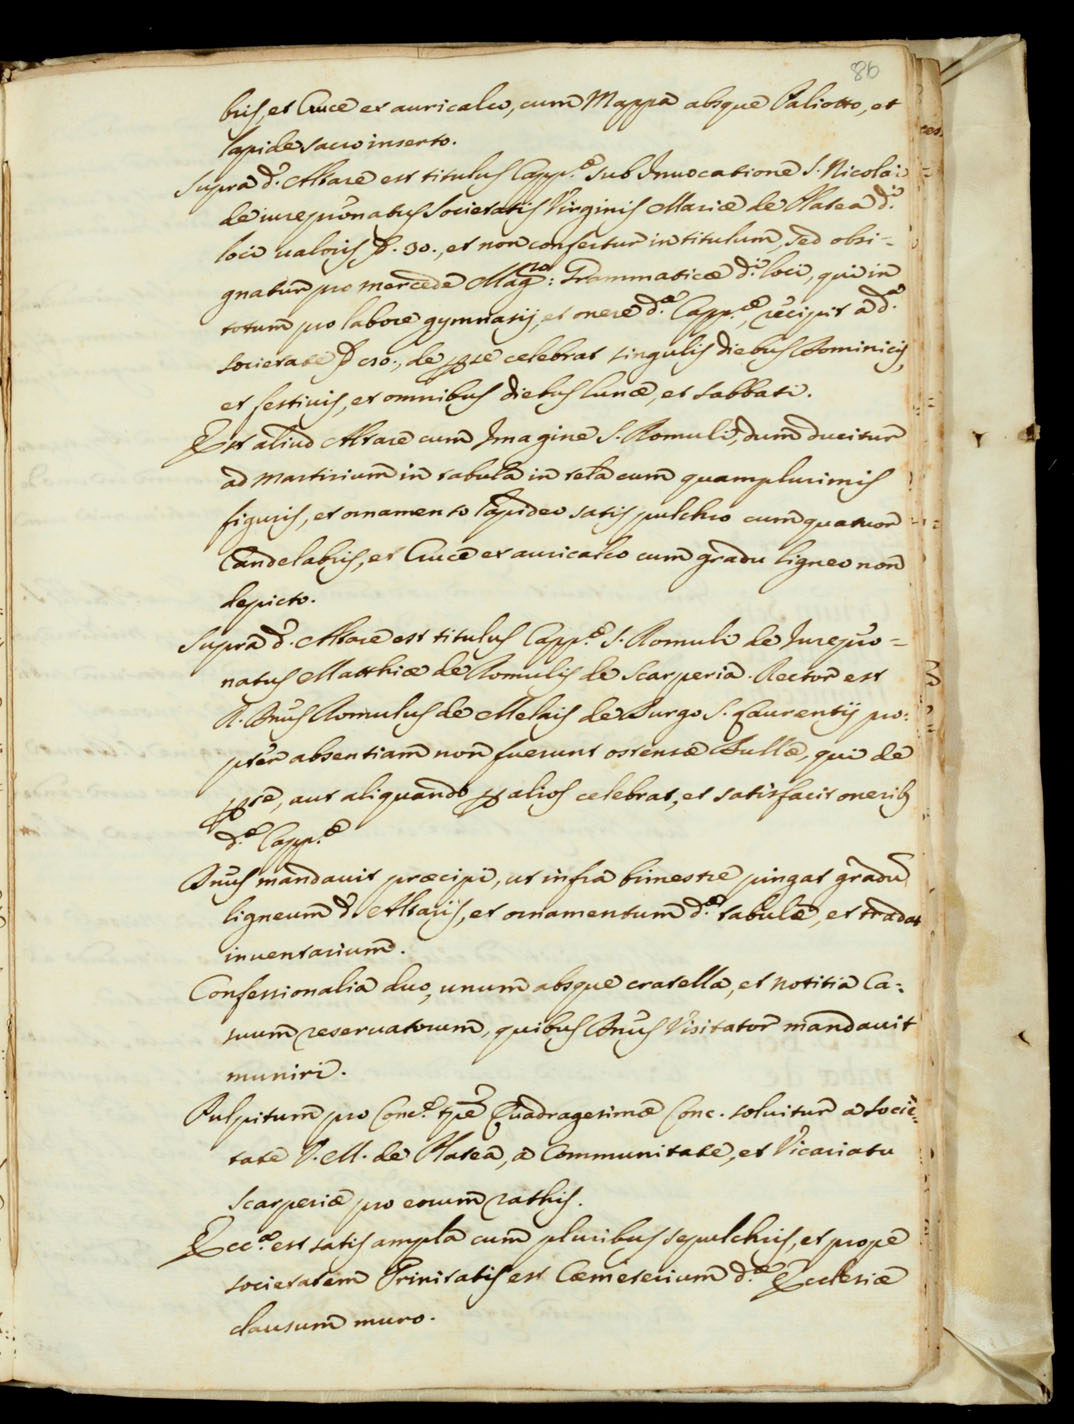 86
bus, et Cruce ex auricalco, cum Mappa absque Paliotto, et
lapide sacro inserto.
Supra d.º Altare est titulus Capp.ę sub Invocatione S. Nicolai
de iurepr̃onatus Societatis Virginis Mariæ de Platea d.i
loci valoris 30., et non confertur in titulum, sed obsi=
gnatur pro mercede Mag.ro: Grammaticæ d.i loci, qui in
totum pro labore gymnasij, et onere d.æ Capp.ę, recipit a d.a
societate de celebrat singulis diebus Dominicis,
et festivis, et omnibus diebus lunæ, et sabbati.
Est aliud Altare cum Imagine S. Romuli, dum ducitur
ad martirium in tabula in tela cum quamplurimis
figuris, et ornamento lapideo satis pulchro cum quatuor
Candelabris, et Cruce ex auricalco cum gradu ligneo non
depicto.
Supra d.º Altare est titulus Capp.ę S. Romuli de Iurepr̃o=
natus Matthiæ de Romulis de Scarperia. Rector est
R. Dñus Romulus de Burgo S. Laurentij pro:
pter absentiam non fuerunt ostensæ Bullæ, qui de
aut aliquando alios celebrat, et satisfacit onerib
d.æ Capp.ę
Dñus mandavit præcipi, ut infra bimestre pingat gradũ
ligneum d. Altaris, et ornamentum d.æ tabulæ, et tradat
inventarium.
Confessionalia duo, unum absque cratella, et notitia Ca=
suum reservatorum, quibus Dñus Visitator mandavit
muniri.
Pulpitum pro Conc.e tp̃e Quadragesimæ Conc. solvitur a Socie=
tate V. M. de Platea, a Communitate, et Vicariatu
Scarperiæ pro eorum rathis.
Ecc.æ est satis ampla cum pluribus sepulchris, et prope
societatem Trinitatis est Cæmeterium d.æ Ecclesiæ
clausum muro.